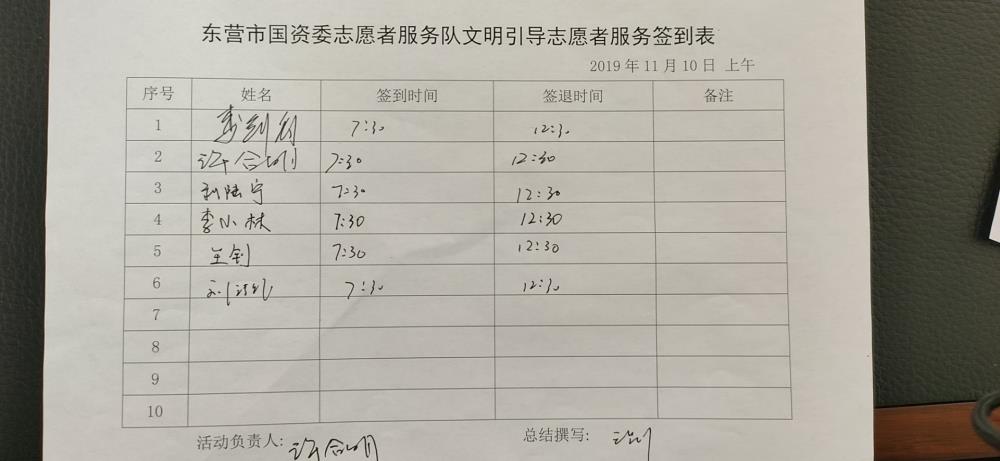 东营市国资委志愿者服务队文明引导志愿者服务签到表
2019 年 11 月 10 日 上午
序号 姓名 签到时间 签退时间 备注
1 7:30 12:30
2 许合明 7:30 12:30
3 刘陆宁 7:30 12:30
4 李小林 7:30 12:30
5 王钊 7:30 12:30
6 7:30 12:30
7
8
9
10
活动负责人: 许合明 总结撰写: